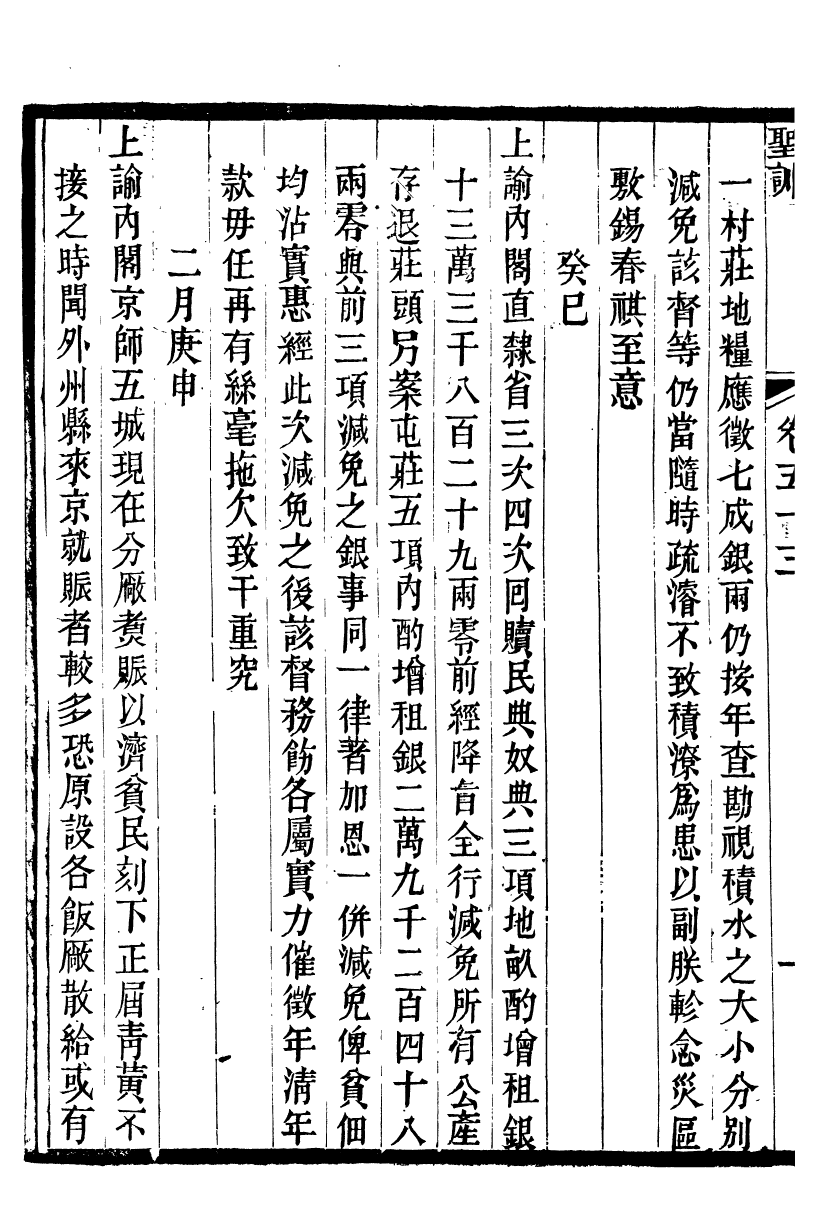 聖訓 卷五十三 一
一村莊地糧應徵七成銀兩仍按年查勘視積水之大小分別
減免該督等仍當隨時疏濬不致積潦為患以副朕軫念災區
敷錫春祺至意
癸巳
上諭內閣直隸省三次四次回贖民典奴典三項地畝酌增租銀
十三萬三千八百二十九兩零前經降旨全行減免所有公產
存退莊頭另案屯莊五項內酌增租銀二萬九千二百四十八
兩零與前三項減免之銀事同一律著加恩一併減免俾貧佃
均沾實惠經此次減免之後該督務飭各屬實力催徵年清年
款毋任再有絲毫拖欠致干重究
二月庚申
上諭內閣京師五城現在分廠煑賑以濟貧民刻下正屆靑黃不
接之時聞外州縣來京就賑者較多恐原設各飯廠散給或有